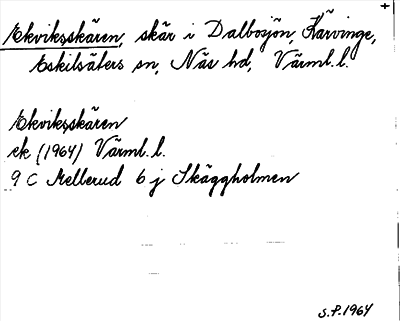 Ekviksskären, skär i Dalbosjön, Kärvinge,
Eskilsäters sn, Näs hd, Värml. l.
Ekviksskären
ek (1964) Värml. l.
9 C Mellerud 6 j Skäggholmen
S.P. 1964